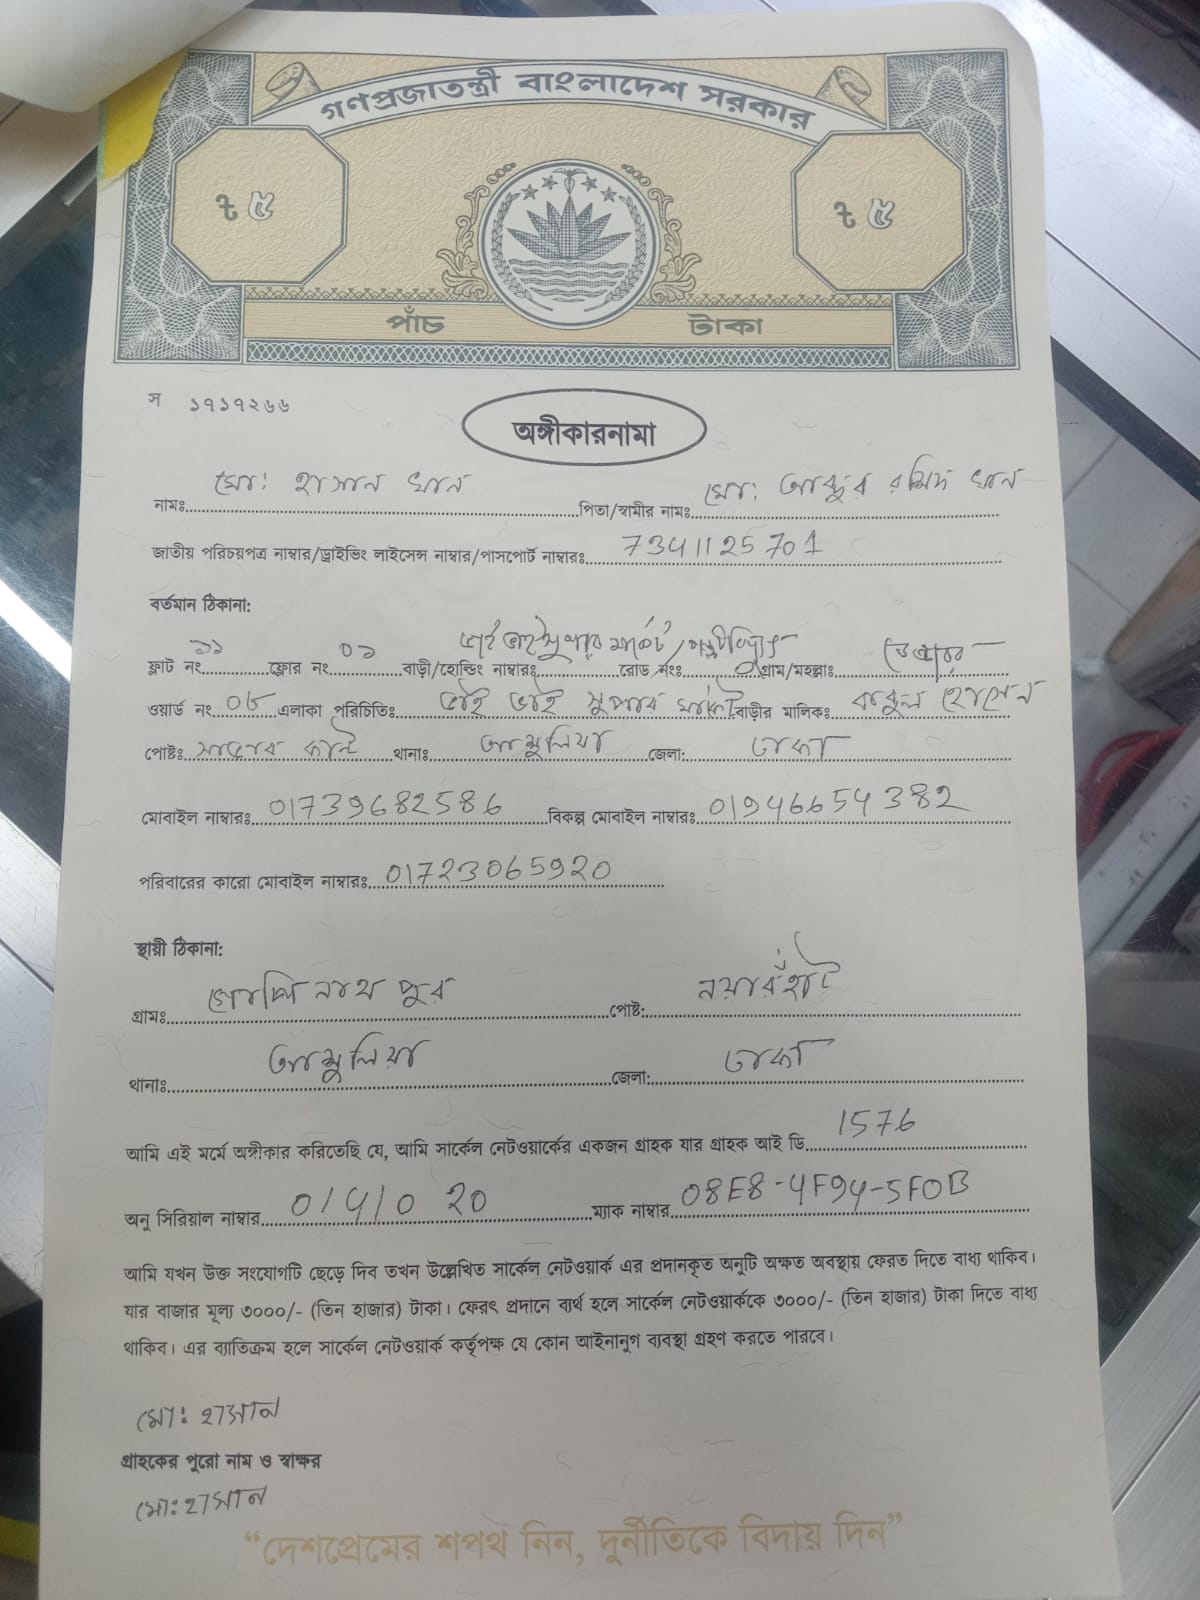 গণপ্রজাতন্ত্রী বাংলাদেশ সরকার
৳ ৫ ৳ ৫
পাঁচ টাকা
স ১৭১৭২৬৬
অঙ্গীকারনামা
নামঃ মোঃ হাসান খান পিতা/স্বামীর নামঃ মোঃ আব্দুর রশিদ খান
জাতীয় পরিচয়পত্র নাম্বার/ড্রাইভিং লাইসেন্স নাম্বার/পাসপোর্ট নাম্বারঃ 7341125701
বর্তমান ঠিকানা:
ফ্লাট নং ১১ ফ্লোর নং ০১ বাড়ী/হোল্ডিং নাম্বারঃ রোড নংঃ গ্রাম/মহল্লাঃ
ওয়ার্ড নং ০৮ এলাকা পরিচিতিঃ ভাই ভাই সুপার মার্কেট বাড়ীর মালিকঃ বাবুল হোসেন
পোষ্টঃ থানাঃ আশুলিয়া জেলা: ঢাকা
মোবাইল নাম্বারঃ 01739682586 বিকল্প মোবাইল নাম্বারঃ 01946654382
পরিবারের কারো মোবাইল নাম্বারঃ 01723065920
স্থায়ী ঠিকানা:
গ্রামঃ গোপিনাথপুর পোষ্ট: নয়ারহাট
থানাঃ আশুলিয়া জেলা: ঢাকা
আমি এই মর্মে অঙ্গীকার করিতেছি যে, আমি সার্কেল নেটওয়ার্কের একজন গ্রাহক যার গ্রাহক আই ডি 1576
অনু সিরিয়াল নাম্বার 0141020 ম্যাক নাম্বার 08E8-4F94-5F0B
আমি যখন উক্ত সংযোগটি ছেড়ে দিব তখন উল্লেখিত সার্কেল নেটওয়ার্ক এর প্রদানকৃত অনুটি অক্ষত অবস্থায় ফেরত দিতে বাধ্য থাকিব।
যার বাজার মূল্য ৩০০০/- (তিন হাজার) টাকা। ফেরৎ প্রদানে ব্যর্থ হলে সার্কেল নেটওয়ার্ককে ৩০০০/- (তিন হাজার) টাকা দিতে বাধ্য
থাকিব। এর ব্যাতিক্রম হলে সার্কেল নেটওয়ার্ক কর্তৃপক্ষ যে কোন আইনানুগ ব্যবস্থা গ্রহণ করতে পারবে।
মোঃ হাসান
গ্রাহকের পুরো নাম ও স্বাক্ষর
মোঃ হাসান
“দেশপ্রেমের শপথ নিন, দুর্নীতিকে বিদায় দিন”